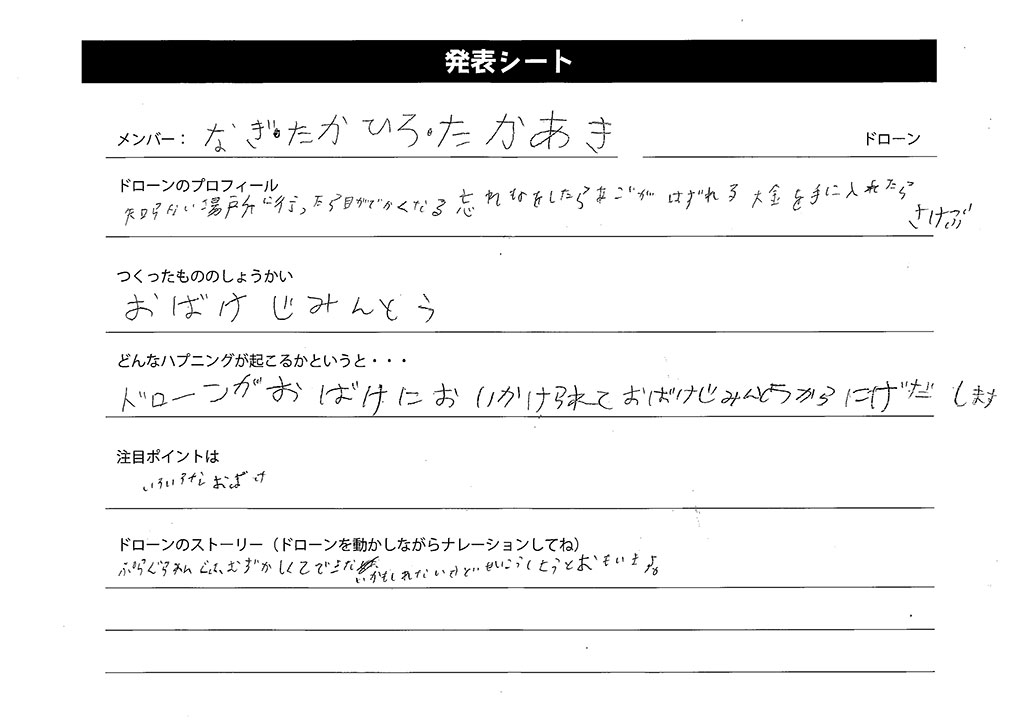 発表シート
メンバー： なぎ・たかひろ・たかあき ドローン
ドローンのプロフィール
知らない場所に行ったら目がでかくなる 忘れものをしたらあごが はずれる 大金を手に入れたら
さけぶ
つくったもののしょうかい
おばけじみんとう
どんなハプニングが起こるかというと・・・
ドローンがおばけにおいかけられておばけじみんとうからにげだします
注目ポイントは
いろいろなおばけ
ドローンのストーリー（ドローンを動かしながらナレーションしてね）
ぷろぐらみんぐは、むずかしくてできないかもしれないけど せいこうしようとおもいます。